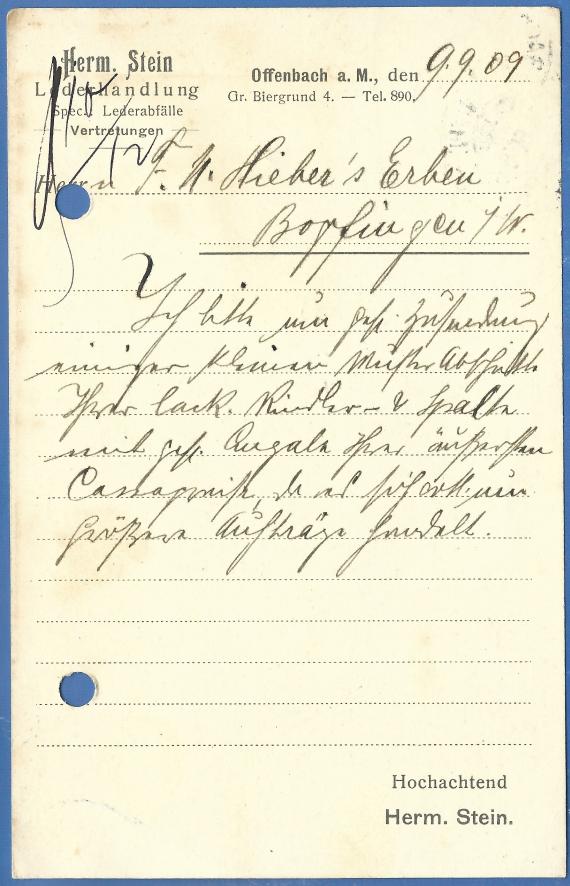 Herm. Stein
Lederhandlung
Spec.: Lederabfälle
Vertretungen
Offenbach a. M., den 9.9.09
Gr. Biergrund 4. — Tel. 890.
Herrn F. H. Hieber's Erben
Bopfingen / W.
Ich bitte um gefl. Zusendung
einiger kleinen Muster Abschnitte
Ihrer lack. Rindler- & Spalte
mit gefl. Angabe Ihrer äußersten
Cassapreise, da es sich um
größere Aufträge handelt.
Hochachtend
Herm. Stein.